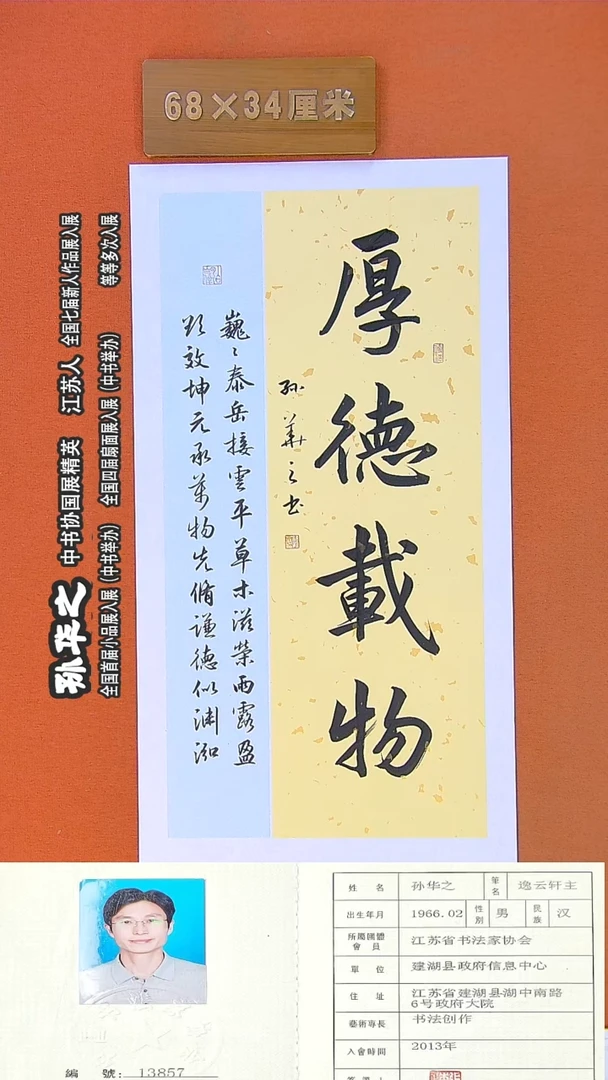 68×34厘米
厚德載物
孙華之书
巍〻泰岳接雲平草木滋榮雨露盈
欲效坤元承萬物先脩謙德似淵泓
孙华之 中书协国展精英 江苏人 全国七届新人作品展入展
全国首届小品展入展(中书举办) 全国四届扇面展入展(中书举办) 等等多次入展
編 號: 13857
姓 名 孙华之 筆名 逸云轩主
出生年月 1966.02 性别 男 民族 汉
所屬團體會員 江苏省书法家协会
單 位 建湖县政府信息中心
住 址 江苏省建湖县湖中南路
6号政府大院
藝術專長 书法创作
入會時間 2013年